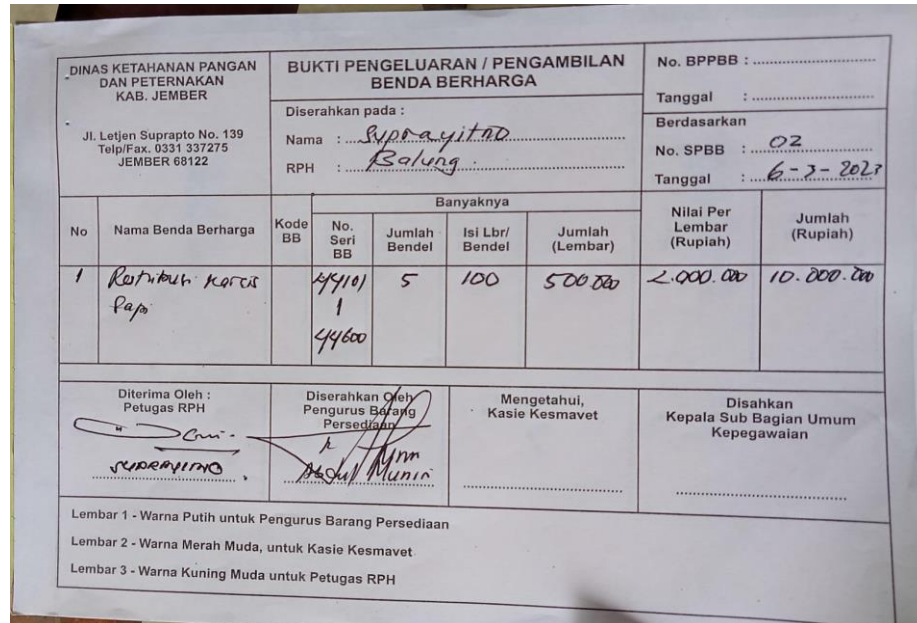 DINAS KETAHANAN PANGAN
DAN PETERNAKAN
KAB. JEMBER
Jl. Letjen Suprapto No. 139
Telp/Fax. 0331 337275
JEMBER 68122
BUKTI PENGELUARAN / PENGAMBILAN
BENDA BERHARGA
Diserahkan pada :
Nama : Suprayitno
RPH : Balung
No. BPPBB :
Tanggal :
Berdasarkan
No. SPBB : 02
Tanggal : 6-3-2023
No
Nama Benda Berharga
Kode
BB
Banyaknya
No.
Seri
BB
Jumlah
Bendel
Isi Lbr/
Bendel
Jumlah
(Lembar)
Nilai Per
Lembar
(Rupiah)
Jumlah
(Rupiah)
1 Retribusi karcis 44101 5 100 500.000 2.000.000 10.000.000
Sapi
44600
Diterima Oleh :
Petugas RPH
SUPRAYITNO
Diserahkan Oleh
Pengurus Barang
Persediaan
Abdul Munir
Mengetahui,
Kasie Kesmavet
Disahkan
Kepala Sub Bagian Umum
Kepegawaian
Lembar 1 - Warna Putih untuk Pengurus Barang Persediaan
Lembar 2 - Warna Merah Muda, untuk Kasie Kesmavet
Lembar 3 - Warna Kuning Muda untuk Petugas RPH